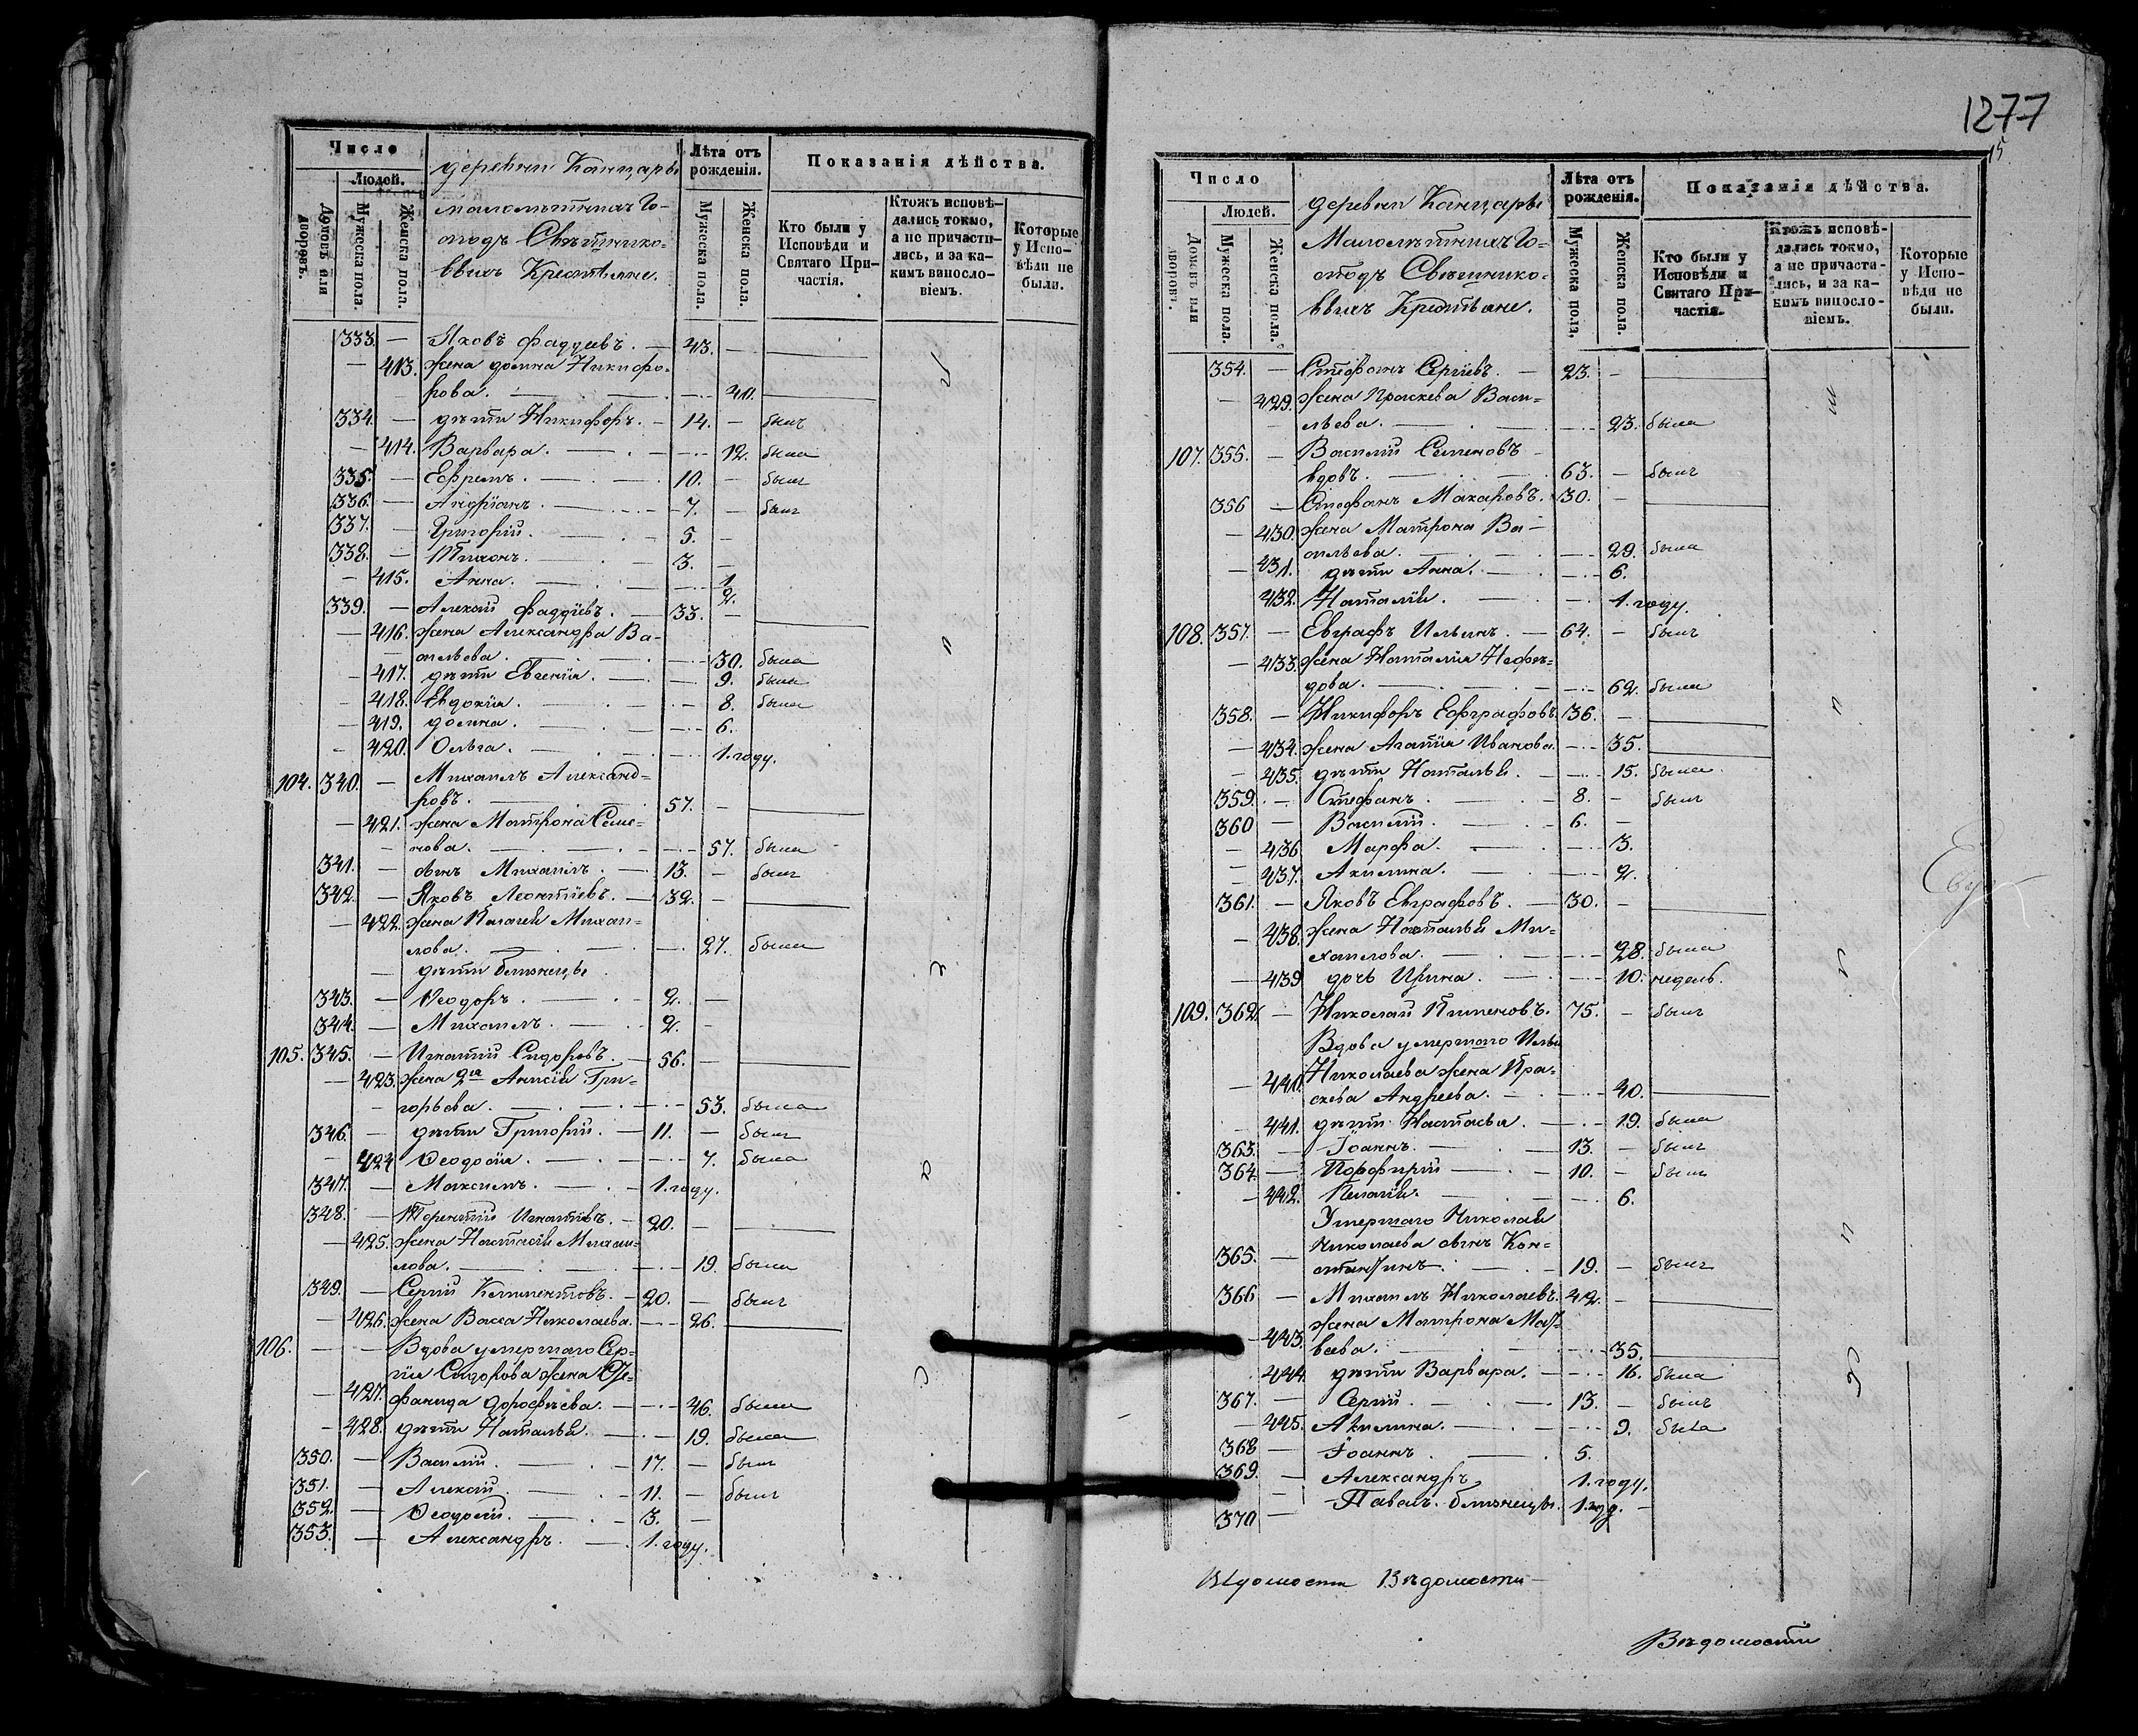 Число
Людей.
Домовъ или дворовъ.
Мужеска пола.
Женска пола.
деревни Канцары
малолѣтныхъ Го-
сподъ Свѣтико-
выхъ Крестьяне.
Лѣта отъ рожденія.
Мужеска пола.
Женска пола.
Показанія дѣйства.
Кто были у Исповѣди и Святаго Причастія.
Ктожъ исповѣдались токмо, а не причастились, и за какимъ винословіемъ.
Которые у Исповѣди не были.
333. — Яковъ Фаддеевъ. — 43. —
— 413. жена Домна Никифо-
рова. — 40.
334. — дѣти Никифоръ. — 14. — былъ
— 414. Варвара. — 12. была
335. — Ефремъ. — 10. — былъ
336. — Андріанъ. — 7. — былъ
337. — Григорій. — 5. —
338. — Тихонъ. — 3. —
— 415. Анна. — 1
2.
339. — Алексій Фаддіевъ. — 33. —
— 416. жена Александра Ва-
сильева. — 30. была
— 417. дѣти Евгенія. — 9. была
— 418. Евдокія. — 8. была
— 419. Домна. — 6.
— 420. Ольга. — 1. году.
104. 340. — Михаилъ Александ-
ровъ. — 57. —
— 421. жена Матрона Семе-
нова. — 57. была
341. — сынъ Михаилъ. — 13. — былъ
342. — Яковъ Леонтіевъ. — 32. —
— 422. жена Пелагія Михаи-
лова. — 27. была
— дѣти близнецы
343. — Ѳеодоръ. — 2. —
344. — Михаилъ. — 2. —
105. 345. — Игнатій Сидоровъ. — 56. —
— 423. жена 2я Анисія Гри-
горьева. — 53. была
346. — дѣти Григорій. — 11. — былъ
— 424 Ѳеодосія. — 7. была
347. — Максимъ. — 1. году.
348. — Терентій Игнатіевъ. — 20. —
— 425. жена Настасія Михаи-
лова. — 19. была
349. — Сергій Климентовъ. — 20. — былъ
— 426. жена Васса Николаева. — 26.
106. — — Вдова умершаго Сер-
гія Сидорова жена Сте-
— 427. фанида Дорофѣева. — 46. была
— 428. дѣти Наталья. — 19. была
350. — Василій. — 17. — былъ
351. — Алексій. — 11. — былъ
352. — Ѳеодосій. — 3. —
353. — Александръ. — 1. году.
1277
15
Число
Людей.
Домовъ или дворовъ.
Мужеска пола.
Женска пола.
деревни Канцары
Малолѣтныхъ Го-
сподъ Свѣчнико-
выхъ Крестьяне.
Лѣта отъ рожденія.
Мужеска пола.
Женска пола.
Показанія дѣйства.
Кто были у Исповѣди и Святаго Причастія.
Ктожъ исповѣдались токмо, а не причастились, и за какимъ винословіемъ.
Которые у Исповѣди не были.
354. — Стефанъ Сергіевъ. — 23. —
— 429. жена Праскева Васи-
льева. — 23. была
107. 355. — Василій Семеновъ
вдовъ. — 63. — былъ
356 — Стефанъ Макаровъ. 30. —
— 430. жена Матрона Ва-
сильева. — 29. была
— 431. дѣти Анна. — 6.
432. Наталія. — 1. году.
108. 357. — Евграфъ Ильинъ. — 64. — былъ
— 433. жена Наталія Нефе-
дова. — 62. была
358. — Никифоръ Ефграфовъ. 36. —
— 434. жена Агапія Иванова. — 35.
— 435. дѣти Наталья. — 15. была
359. — Стефанъ. — 8. — былъ
360 — Василій. — 6. —
— 436 Марфа. — 3.
— 437. Акилина. — 2.
361. — Яковъ Евграфовъ. — 30. —
— 438. жена Наталья Ми-
хаилова. — 28. была
— 439 дочь Ирина. — 10. недель.
109. 362. — Николай Пименовъ. 75. — былъ
Вдова умершаго Ильи
— 440. Николаева жена Пра-
скева Андреева. — 40.
— 441. дѣти Настасья. — 19. была
363. — Іоаннъ. — 13. — былъ
364. — Порфирій — 10. — былъ
— 442. Пелагія. — 6.
Умершаго Николая
365. — Николаева сынъ Кон-
стантинъ. — 19. — былъ
366 — Михаилъ Николаевъ. 42. —
— 443. жена Матрона Мат-
веева. — 35.
444 дѣти Варвара. — 16. была
367. — Сергій. — 13. — былъ
— 445. Акилина. — 9. была
368 — Іоаннъ. — 5.
369. — Александръ 1. году.
370 — Павелъ. близнецы. 1. год. —
Вѣдомости Вѣдомости
Вѣдомости